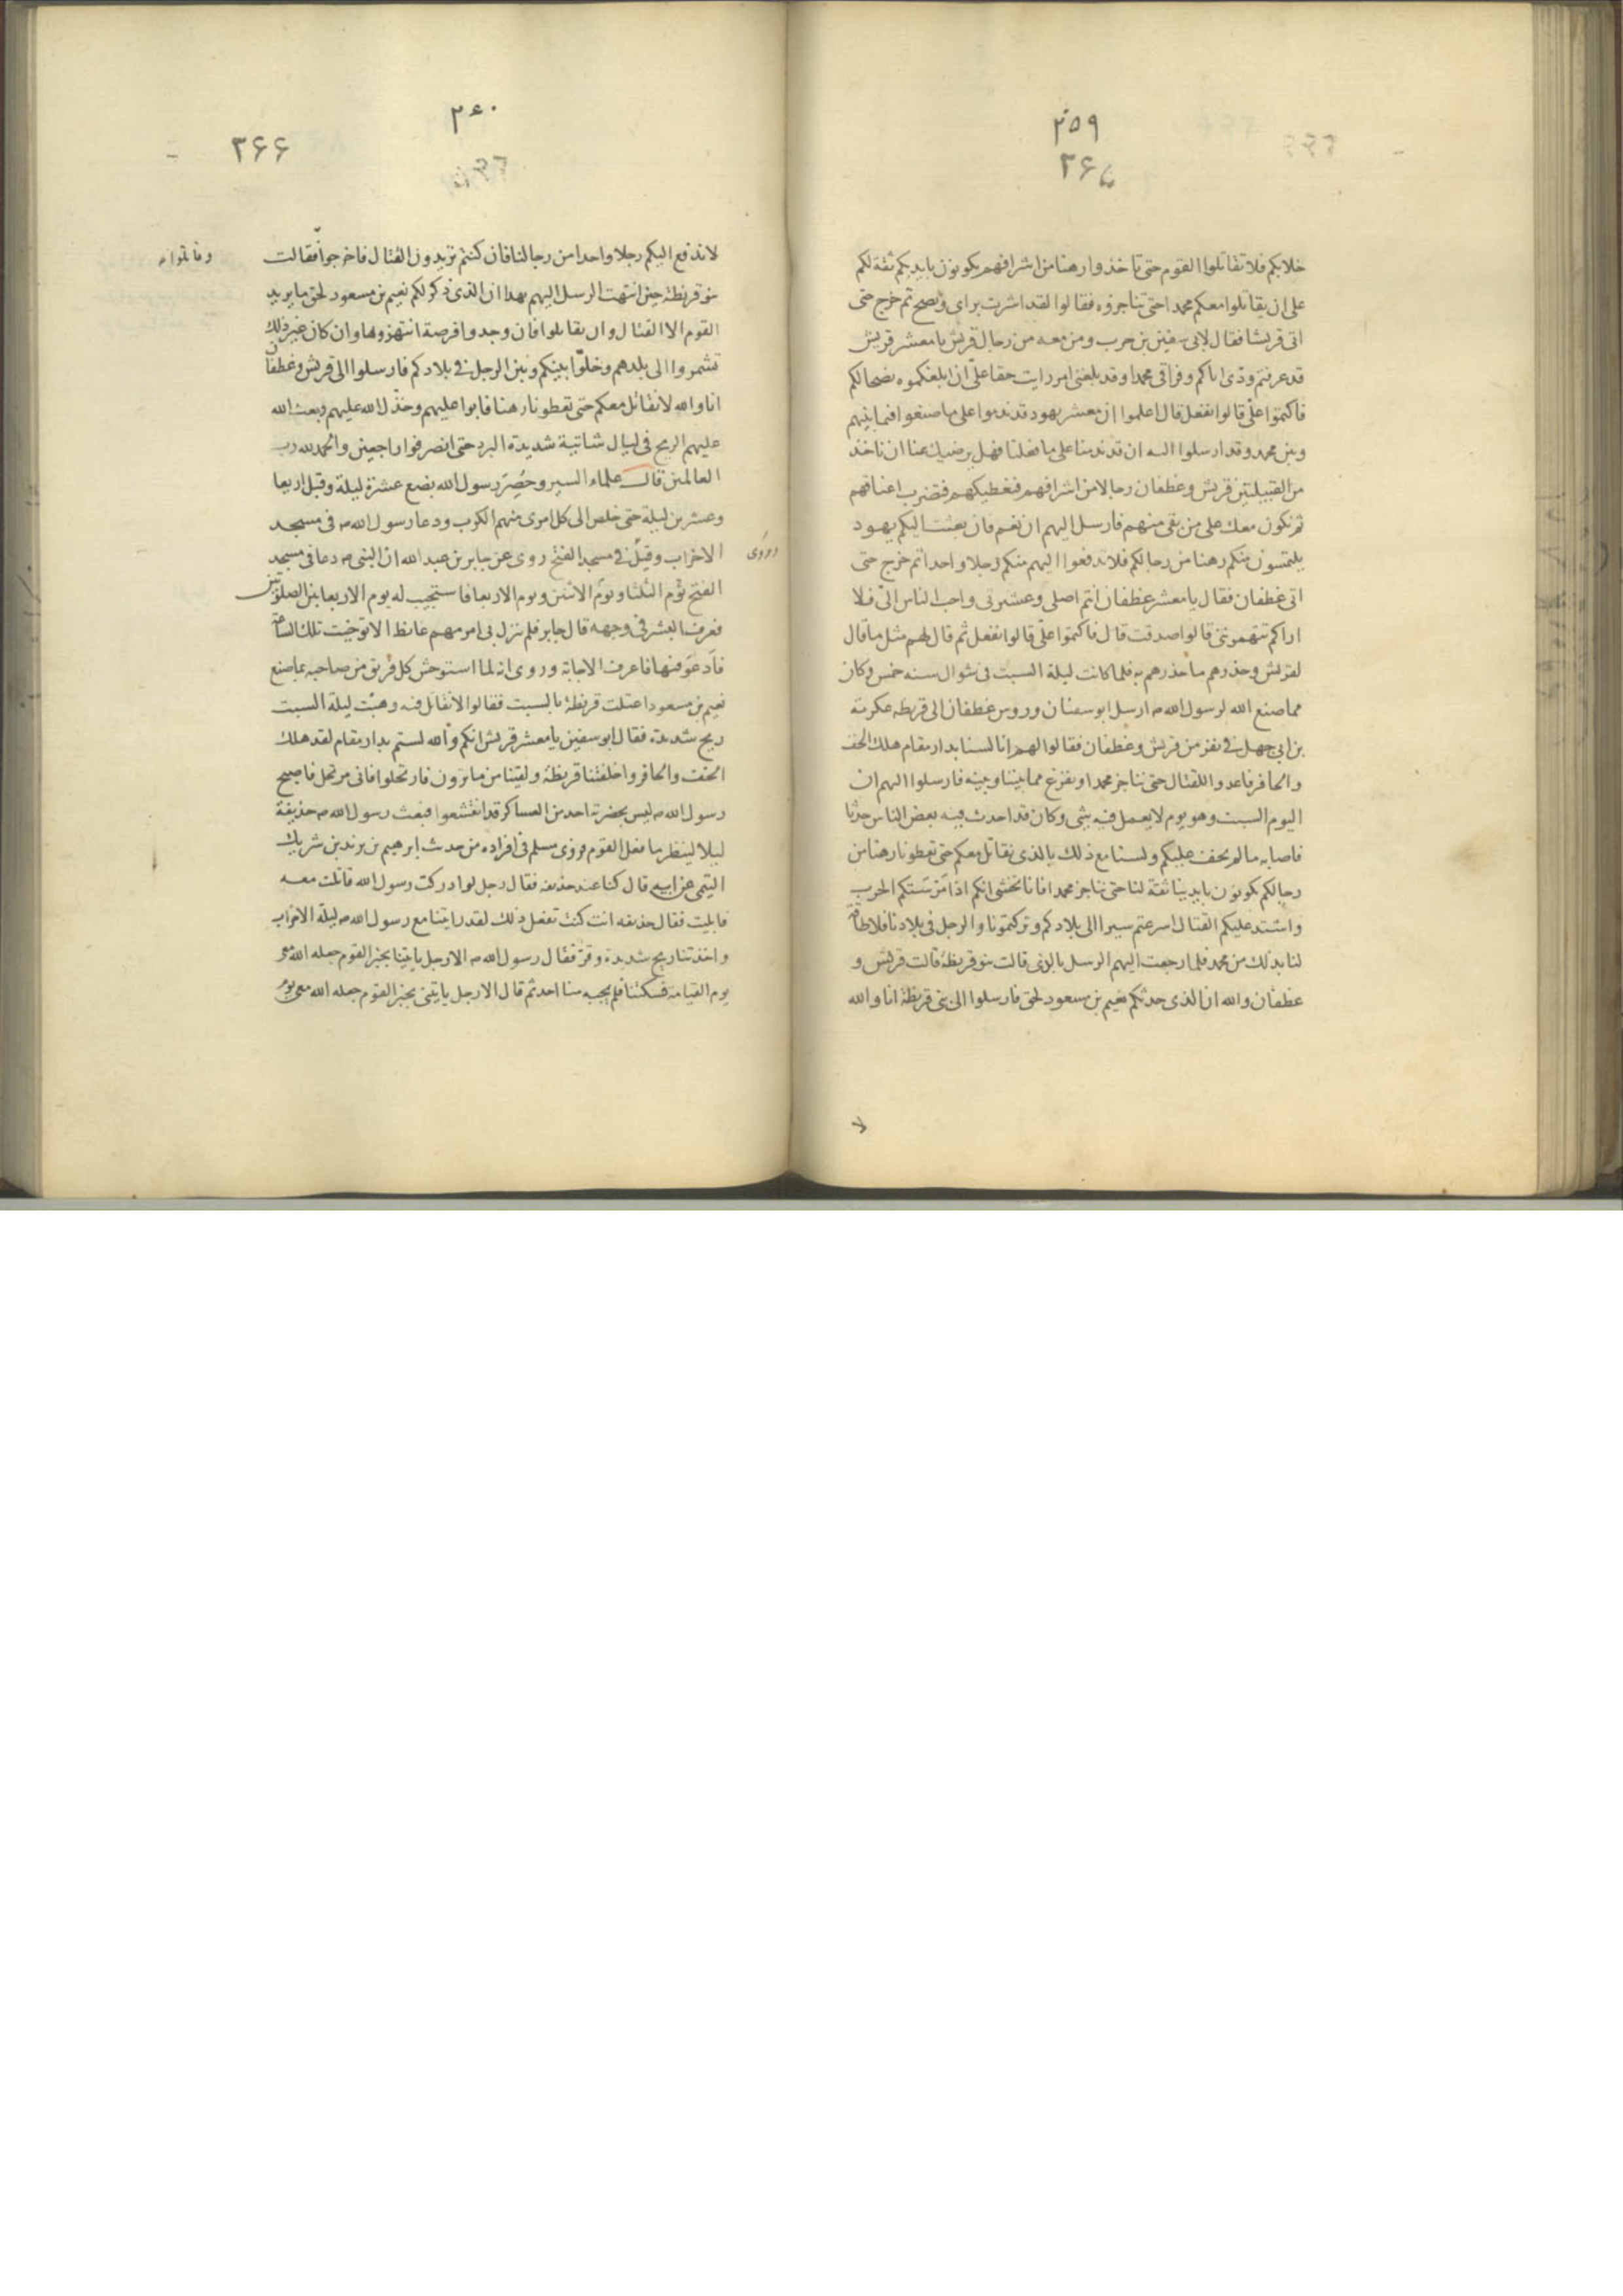 ۲۵۹
۳۶۵
خلابكم فلا تقاتلوا القوم حتى تاخذوا رهنا من اشرافهم يكونون بايديكم ثقة لكم
على ان يقاتلوا معكم محمدا حتى تناجزوه فقالوا لقد اشرت براى ونصح ثم خرج حتى
اتى قريشا فقال لابى سفين بن حرب ومن معه من رجال قريش يا معشر قريش
قد عرفتم ودى اياكم وفراقى محمدا وقد بلغنى امر رايت حقا علىّ ان ابلغكموه نصحا لكم
فاكتموا علىّ قالوا نفعل قال اعلموا ان معشر يهود قد ندموا على ما صنعوا فيما بينهم
وبين محمد وقد ارسلوا اليه ان قد ندمنا على ما فعلنا فهل يرضيك عنا ان ناخذ
من القبيلتين قريش وغطفان رجالا من اشرافهم فنعطيكهم فتضرب اعناقهم
ثم نكون معك على من بقى منهم فارسل اليهم ان نعم فان بعثت اليكم يهود
يلتمسون منكم رهنا من رجالكم فلا تدفعوا اليهم منكم رجلا واحدا ثم خرج حتى
اتى غطفان فقال يا معشر غطفان انتم اصلى وعشيرتى واحب الناس الىّ فلا
اراكم تتهموننى قالوا صدقت قال فاكتموا علىّ قالوا نفعل ثم قال لهم مثل ما قال
لقريش وحذرهم ما حذرهم به فلما كانت ليلة السبت فى شوال سنه خمس وكان
مما صنع الله لرسول الله ص ارسل ابو سفيان وروس غطفان الى قريظه عكرمة
بن ابى جهل فى نفر من قريش وغطفان فقالوا لهم انا لسنا بدار مقام هلك الخف
والحافر فاعدوا للقتال حتى نناجز محمدا ونفرغ مما بيننا وبينه فارسلوا اليهم ان
اليوم السبت وهو يوم لا يعمل فيه شى وكان قد احدث فيه بعض الناس حدثا
فاصابه ما لم يخف عليكم ولسنا مع ذلك بالذى نقاتل معكم حتى تعطونا رهنا من
رجالكم يكونون بايدينا ثقة لنا حتى نناجز محمدا فانا نخشى انكم اذا ضرستكم الحرب
واشتد عليكم القتال اسرعتم سيرا الى بلادكم وتركتمونا والرجل فى بلادنا فلا طاقة
لنا بذلك من محمد فلما رجعت اليهم الرسل بالذى قالت بنو قريظة قالت قريش و
غطفان والله ان الذى حدثكم نعيم بن مسعود لحق فارسلوا الى بنى قريظة انا والله
لا
۲۶۰
۳۶۶
لا ندفع اليكم رجلا واحدا من رجالنا فان كنتم تريدون القتال فاخرجوا فقالت
وقاتلوا ص
بنو قريظة حين انتهت الرسل اليهم بهذا ان الذى ذكر لكم نعيم بن مسعود لحق ما يريد
القوم الا القتال وان يقاتلوا فان وجدوا فرصة انتهزوها وان كان غير ذلك
تشمروا الى بلدهم وخلوا بينكم وبين الرجل فى بلادكم فارسلوا الى قريش وغطفان
انا والله لا نقاتل معكم حتى تعطونا رهنا فابوا عليهم وخذل الله عليهم وبعث الله
عليهم الريح فى ليال شاتية شديدة البرد حتى انصرفوا راجعين والحمد لله رب
العالمين قال علماء السير وحُصِرَ رسول الله بضع عشرة ليلة وقيل اربعا
وعشرين ليلة حتى خلص الى كل امرى منهم الكرب ودعا رسول الله ص فى مسجد
الاحزاب وقيل فى مسجد الفتح روى عن جابر بن عبد الله ان النبى ص دعا فى مسجد
وروى
الفتح يوم الثلثا ويوم الاثنين ويوم الاربعا فاستجيب له يوم الاربعا بين الصلوتين
فعرفنا البشر فى وجهه قال جابر فلم ينزل بى امر مهم غايظ الا توخيت تلك الساعة
فادعو فيها فاعرف الاجابة وروى انه لما استوحش كل فريق من صاحبه بما صنع
نعيم بن مسعود اعتلت قريظة بالسبت فقالوا لا نقاتل فيه وهبت ليلة السبت
ريح شديدة فقال ابو سفين يا معشر قريش انكم والله لستم بدار مقام لقد هلك
الخف والحافر واخلفتنا قريظة ولقينا من ما ترون فارتحلوا فانى مرتحل فاصبح
رسول الله ص ليس بحضرته احد من العساكر قد انقشعوا فبعث رسول الله ص حذيفة
ليلا لينظر ما فعل القوم وروى مسلم فى افراده من حديث ابرهيم بن يزيد بن شريك
التيمى عن ابيه قال كنا عند حذيفه فقال رجل لو ادركت رسول الله قاتلت معه
فابليت فقال حذيفه انت كنت تفعل ذلك لقد رايتنا مع رسول الله ص ليلة الاحزاب
واخذتنا ريح شديدة وقر فقال رسول الله ص الا رجل ياتينا بخبر القوم جعله الله معى
يوم القيامة فسكتنا فلم يجبه منا احد ثم قال الا رجل ياتينى بخبر القوم جعله الله معى يوم